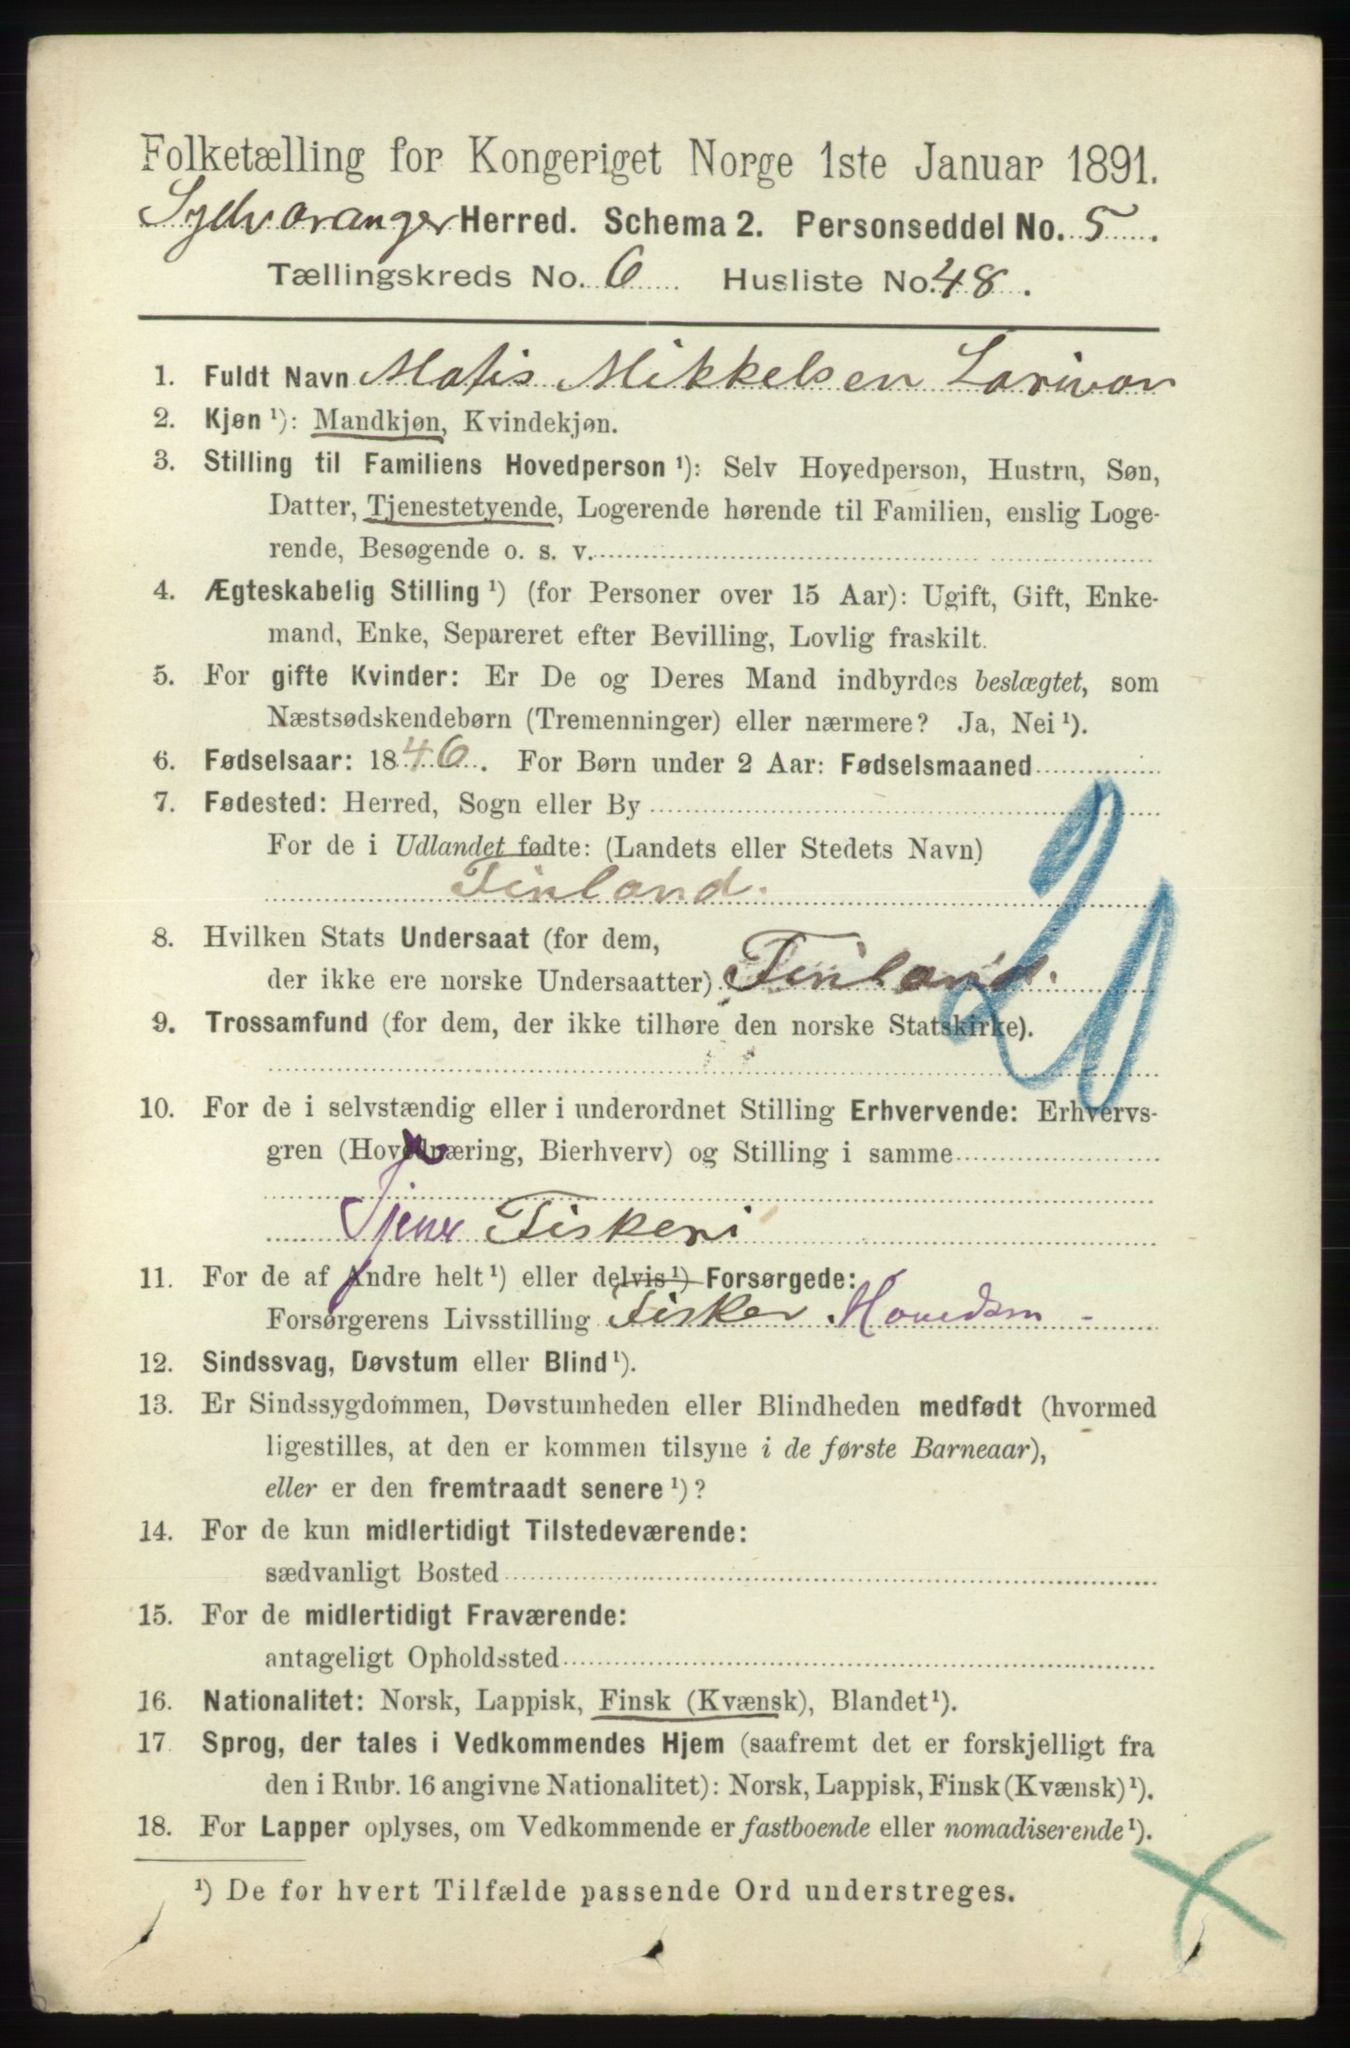 Folketælling for Kongeriget Norge 1ste Januar 1891.
Sydvaranger Herred. Schema 2. Personseddel No. 5.
Tællingskreds No. 6 Husliste No. 48.
1. Fuldt Navn Matis Mikkelsen
2. Kjøn ¹): Mandkjøn, Kvindekjøn.
3. Stilling til Familiens Hovedperson ¹): Selv Hovedperson, Hustru, Søn,
Datter, Tjenestetyende, Logerende hørende til Familien, enslig Loge-
rende, Besøgende o. s. v.
4. Ægteskabelig Stilling ¹) (for Personer over 15 Aar): Ugift, Gift, Enke-
mand, Enke, Separeret efter Bevilling, Lovlig fraskilt.
5. For gifte Kvinder: Er De og Deres Mand indbyrdes beslægtet, som
Næstsødskendebørn (Tremenninger) eller nærmere? Ja, Nei ¹).
6. Fødselsaar: 1846. For Børn under 2 Aar: Fødselsmaaned
7. Fødested: Herred, Sogn eller By
For de i Udlandet fødte: (Landets eller Stedets Navn)
Finland.
8. Hvilken Stats Undersaat (for dem,
der ikke ere norske Undersaatter) Finland.
20
9. Trossamfund (for dem, der ikke tilhøre den norske Statskirke).
10. For de i selvstændig eller i underordnet Stilling Erhvervende: Erhvervs-
gren (Hovednæring, Bierhverv) og Stilling i samme
Tjener Fiskeri
11. For de af Andre helt ¹) eller delvis ¹) Forsørgede:
Forsørgerens Livsstilling Fisker.
12. Sindssvag, Døvstum eller Blind ¹).
13. Er Sindssygdommen, Døvstumheden eller Blindheden medfødt (hvormed
ligestilles, at den er kommen tilsyne i de første Barneaar),
eller er den fremtraadt senere ¹)?
14. For de kun midlertidigt Tilstedeværende:
sædvanligt Bosted
15. For de midlertidigt Fraværende:
antageligt Opholdssted
16. Nationalitet: Norsk, Lappisk, Finsk (Kvænsk), Blandet ¹).
17. Sprog, der tales i Vedkommendes Hjem (saafremt det er forskjelligt fra
den i Rubr. 16 angivne Nationalitet): Norsk, Lappisk, Finsk (Kvænsk) ¹).
18. For Lapper oplyses, om Vedkommende er fastboende eller nomadiserende ¹).
¹) De for hvert Tilfælde passende Ord understreges.